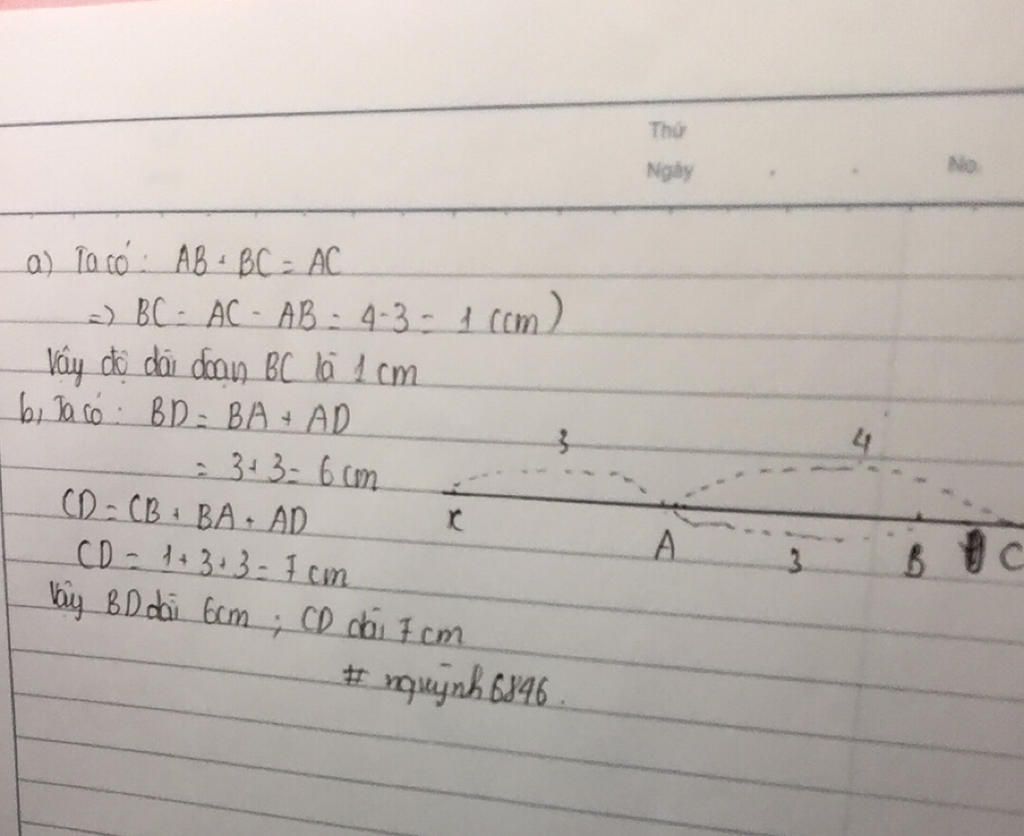 Thứ
Ngày . . No
a) Ta có : AB + BC = AC
=> BC = AC - AB = 4-3 = 1 (cm)
Vậy độ dài đoạn BC là 1 cm
b, Ta có : BD = BA + AD
= 3+3 = 6 cm
CD = CB + BA + AD
CD = 1+3+3 = 7 cm
Vậy BD dài 6cm ; CD dài 7 cm
# nquỳnh6846.
3 4
x A 3 B C